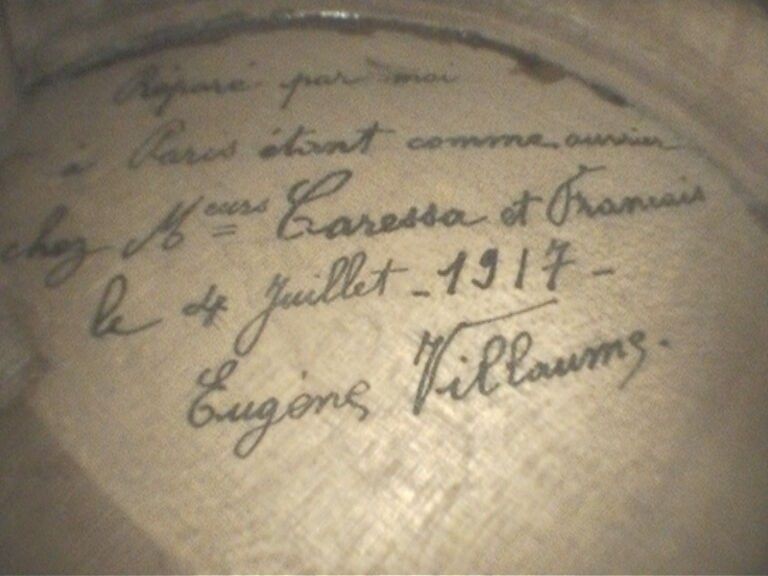 Réparé par moi
à Paris étant comme ouvrier
chez Meurs Caressa et Francais
le 4 Juillet - 1917 -
Eugène Villaume.